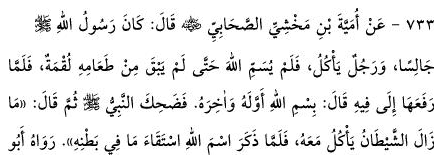 ٧٣٣ - عَنْ أُمَيَّةَ بْنِ مَخْشِيٍّ الصَّحَابِيِّ ﷺ قَالَ: كَانَ رَسُولُ اللهِ ﷺ
جَالِسًا، وَرَجُلٌ يَأْكُلُ، فَلَمْ يُسَمِّ اللهَ حَتَّى لَمْ يَبْقَ مِنْ طَعَامِهِ لُقْمَةٌ، فَلَمَّا
رَفَعَهَا إِلَى فِيهِ قَالَ: بِسْمِ اللهِ أَوَّلَهُ وَآخِرَهُ. فَضَحِكَ النَّبِيُّ ﷺ ثُمَّ قَالَ: «مَا
زَالَ الشَّيْطَانُ يَأْكُلُ مَعَهُ، فَلَمَّا ذَكَرَ اسْمَ اللهِ اسْتَقَاءَ مَا فِي بَطْنِهِ». رَوَاهُ أَبُو